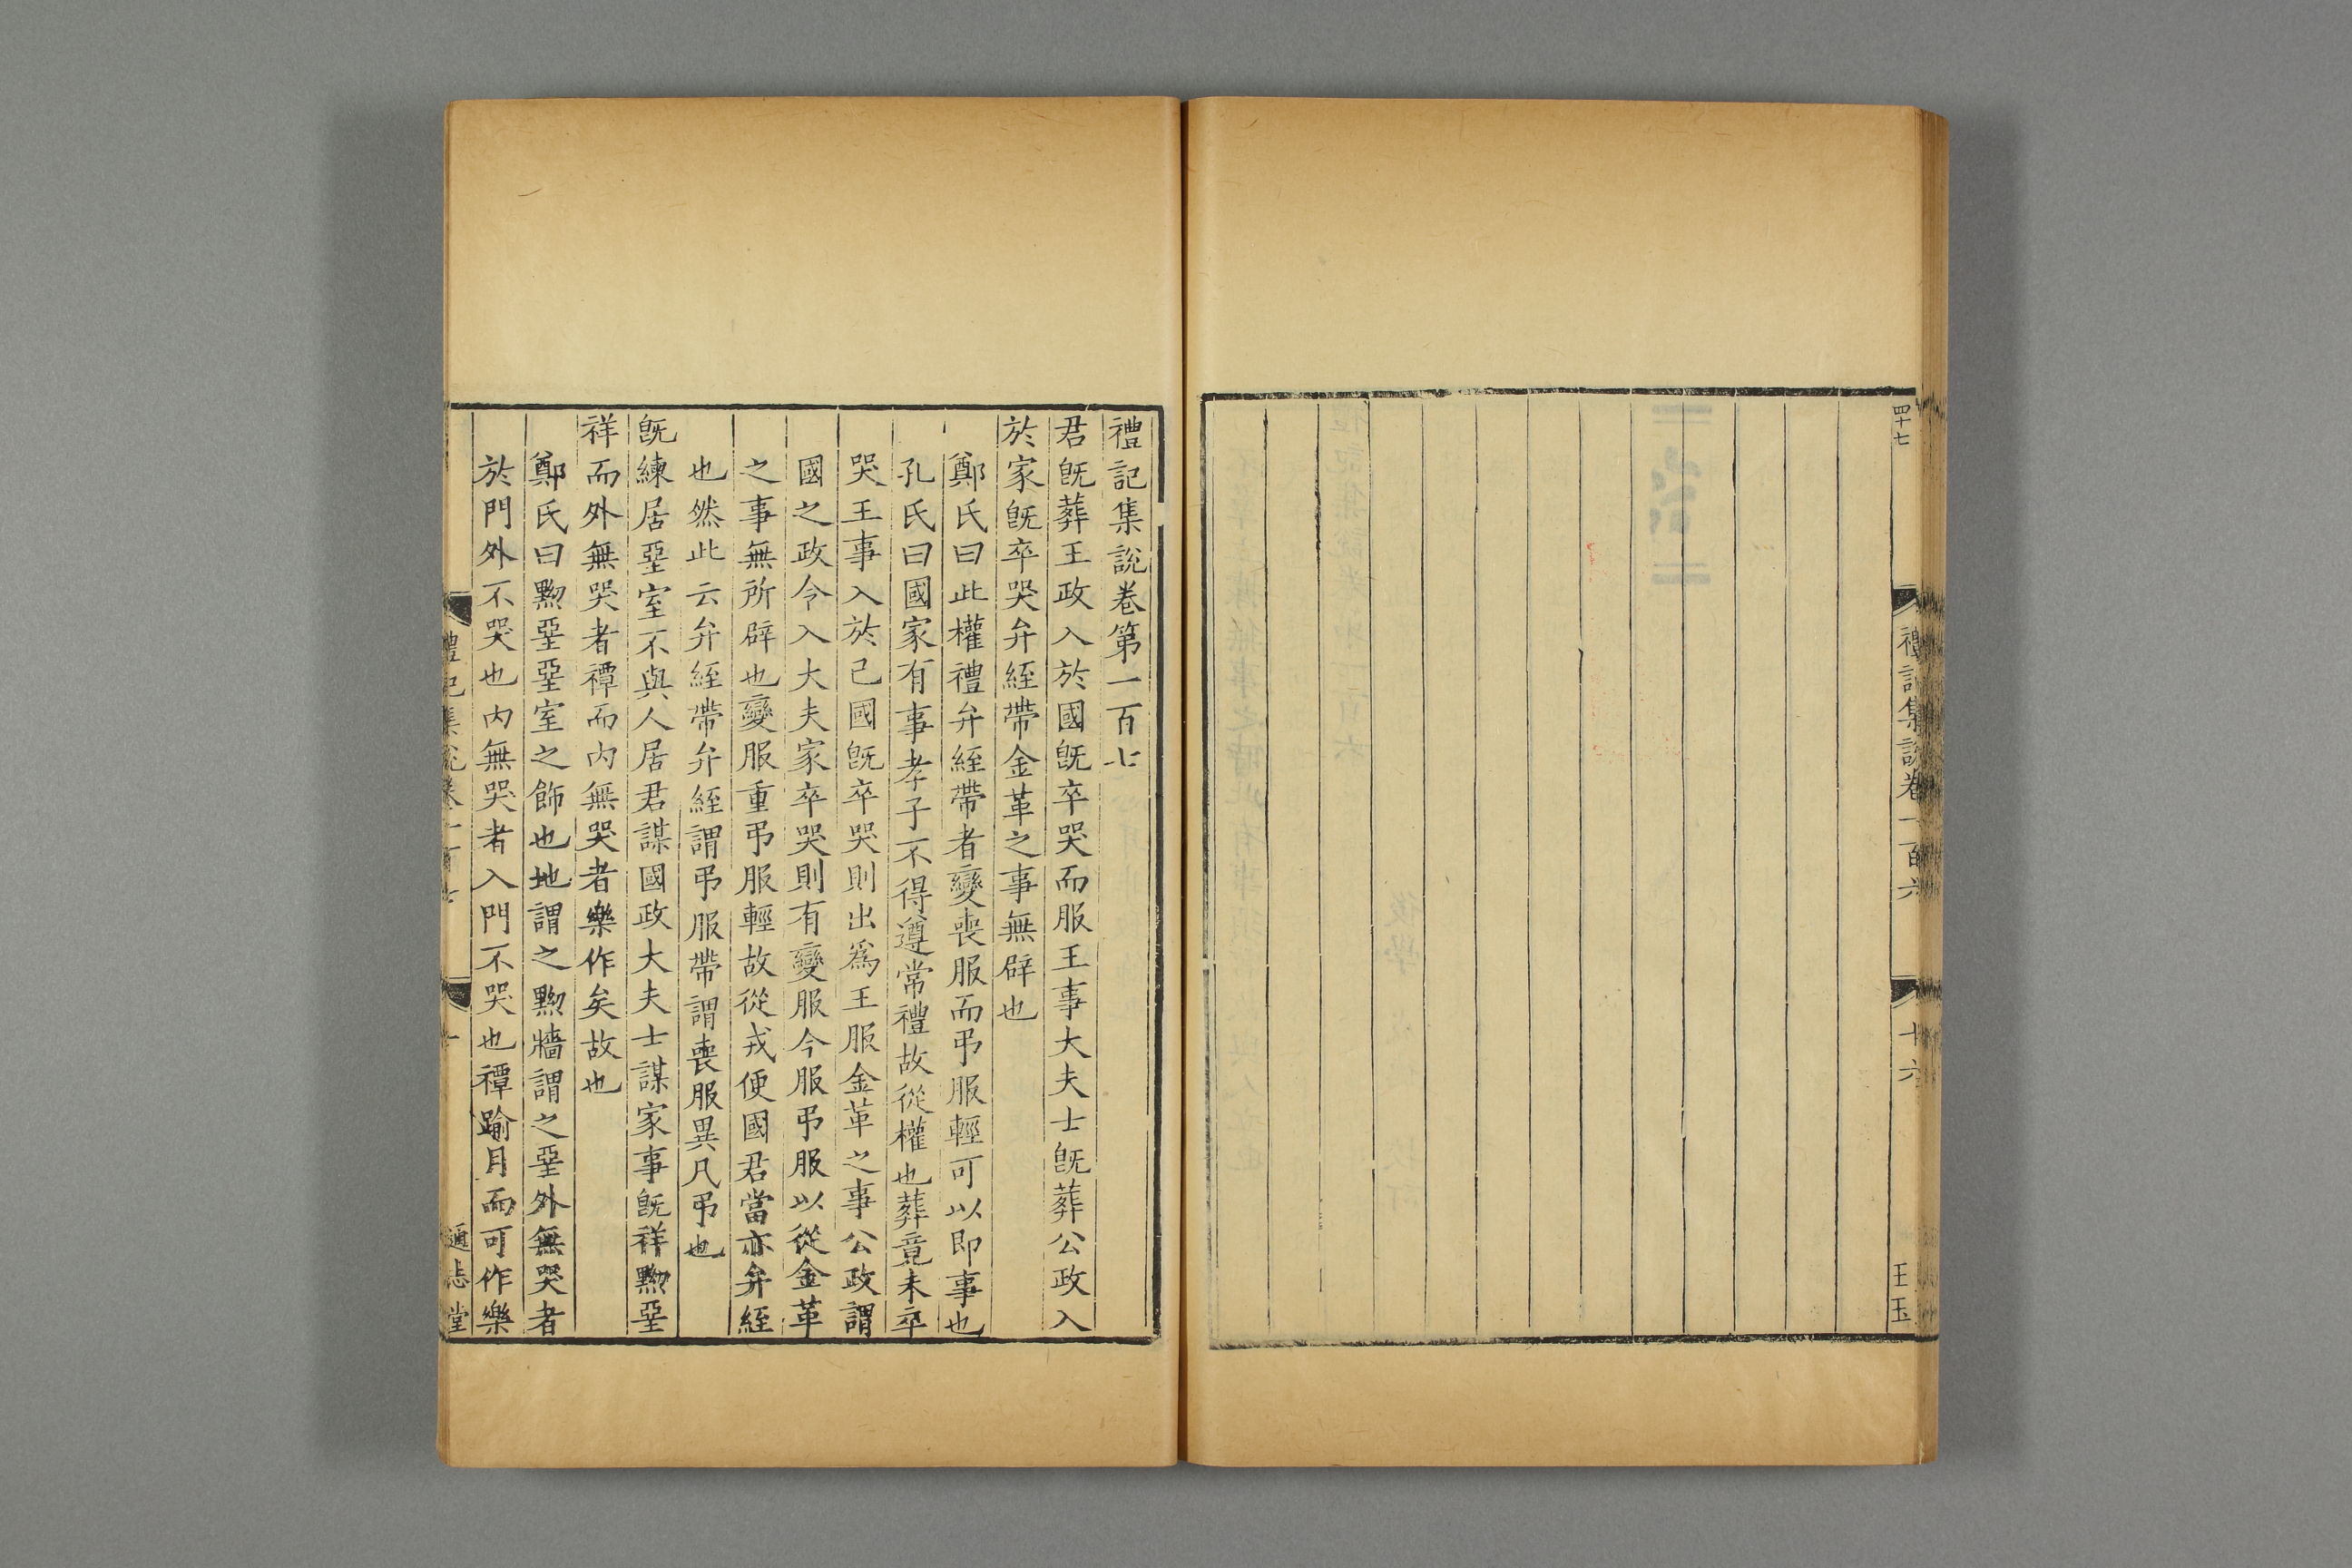 四十七
禮記集說卷一百六
十六
王玉
禮記集說卷第一百七
君旣葬王政入於國旣卒哭而服王事大夫士旣葬公政入
於家旣卒哭弁絰帶金革之事無辟也
鄭氏曰此權禮弁絰帶者變喪服而弔服輕可以即事也
孔氏曰國家有事孝子不得遵常禮故從權也葬竟未卒
哭王事入於己國旣卒哭則出爲王服金革之事公政謂
國之政令入大夫家卒哭則有變服今服弔服以從金革
之事無所辟也變服重弔服輕故從戎便國君當亦弁絰
也然此云弁絰帶弁絰謂弔服帶謂喪服異凡弔也
旣練居堊室不與人居君謀國政大夫士謀家事旣祥黝堊
祥而外無哭者禫而內無哭者樂作矣故也
鄭氏曰黝堊堊室之飾也地謂之黝牆謂之堊外無哭者
於門外不哭也內無哭者入門不哭也禫踰月而可作樂
禮記集說卷一百七
一
通志堂